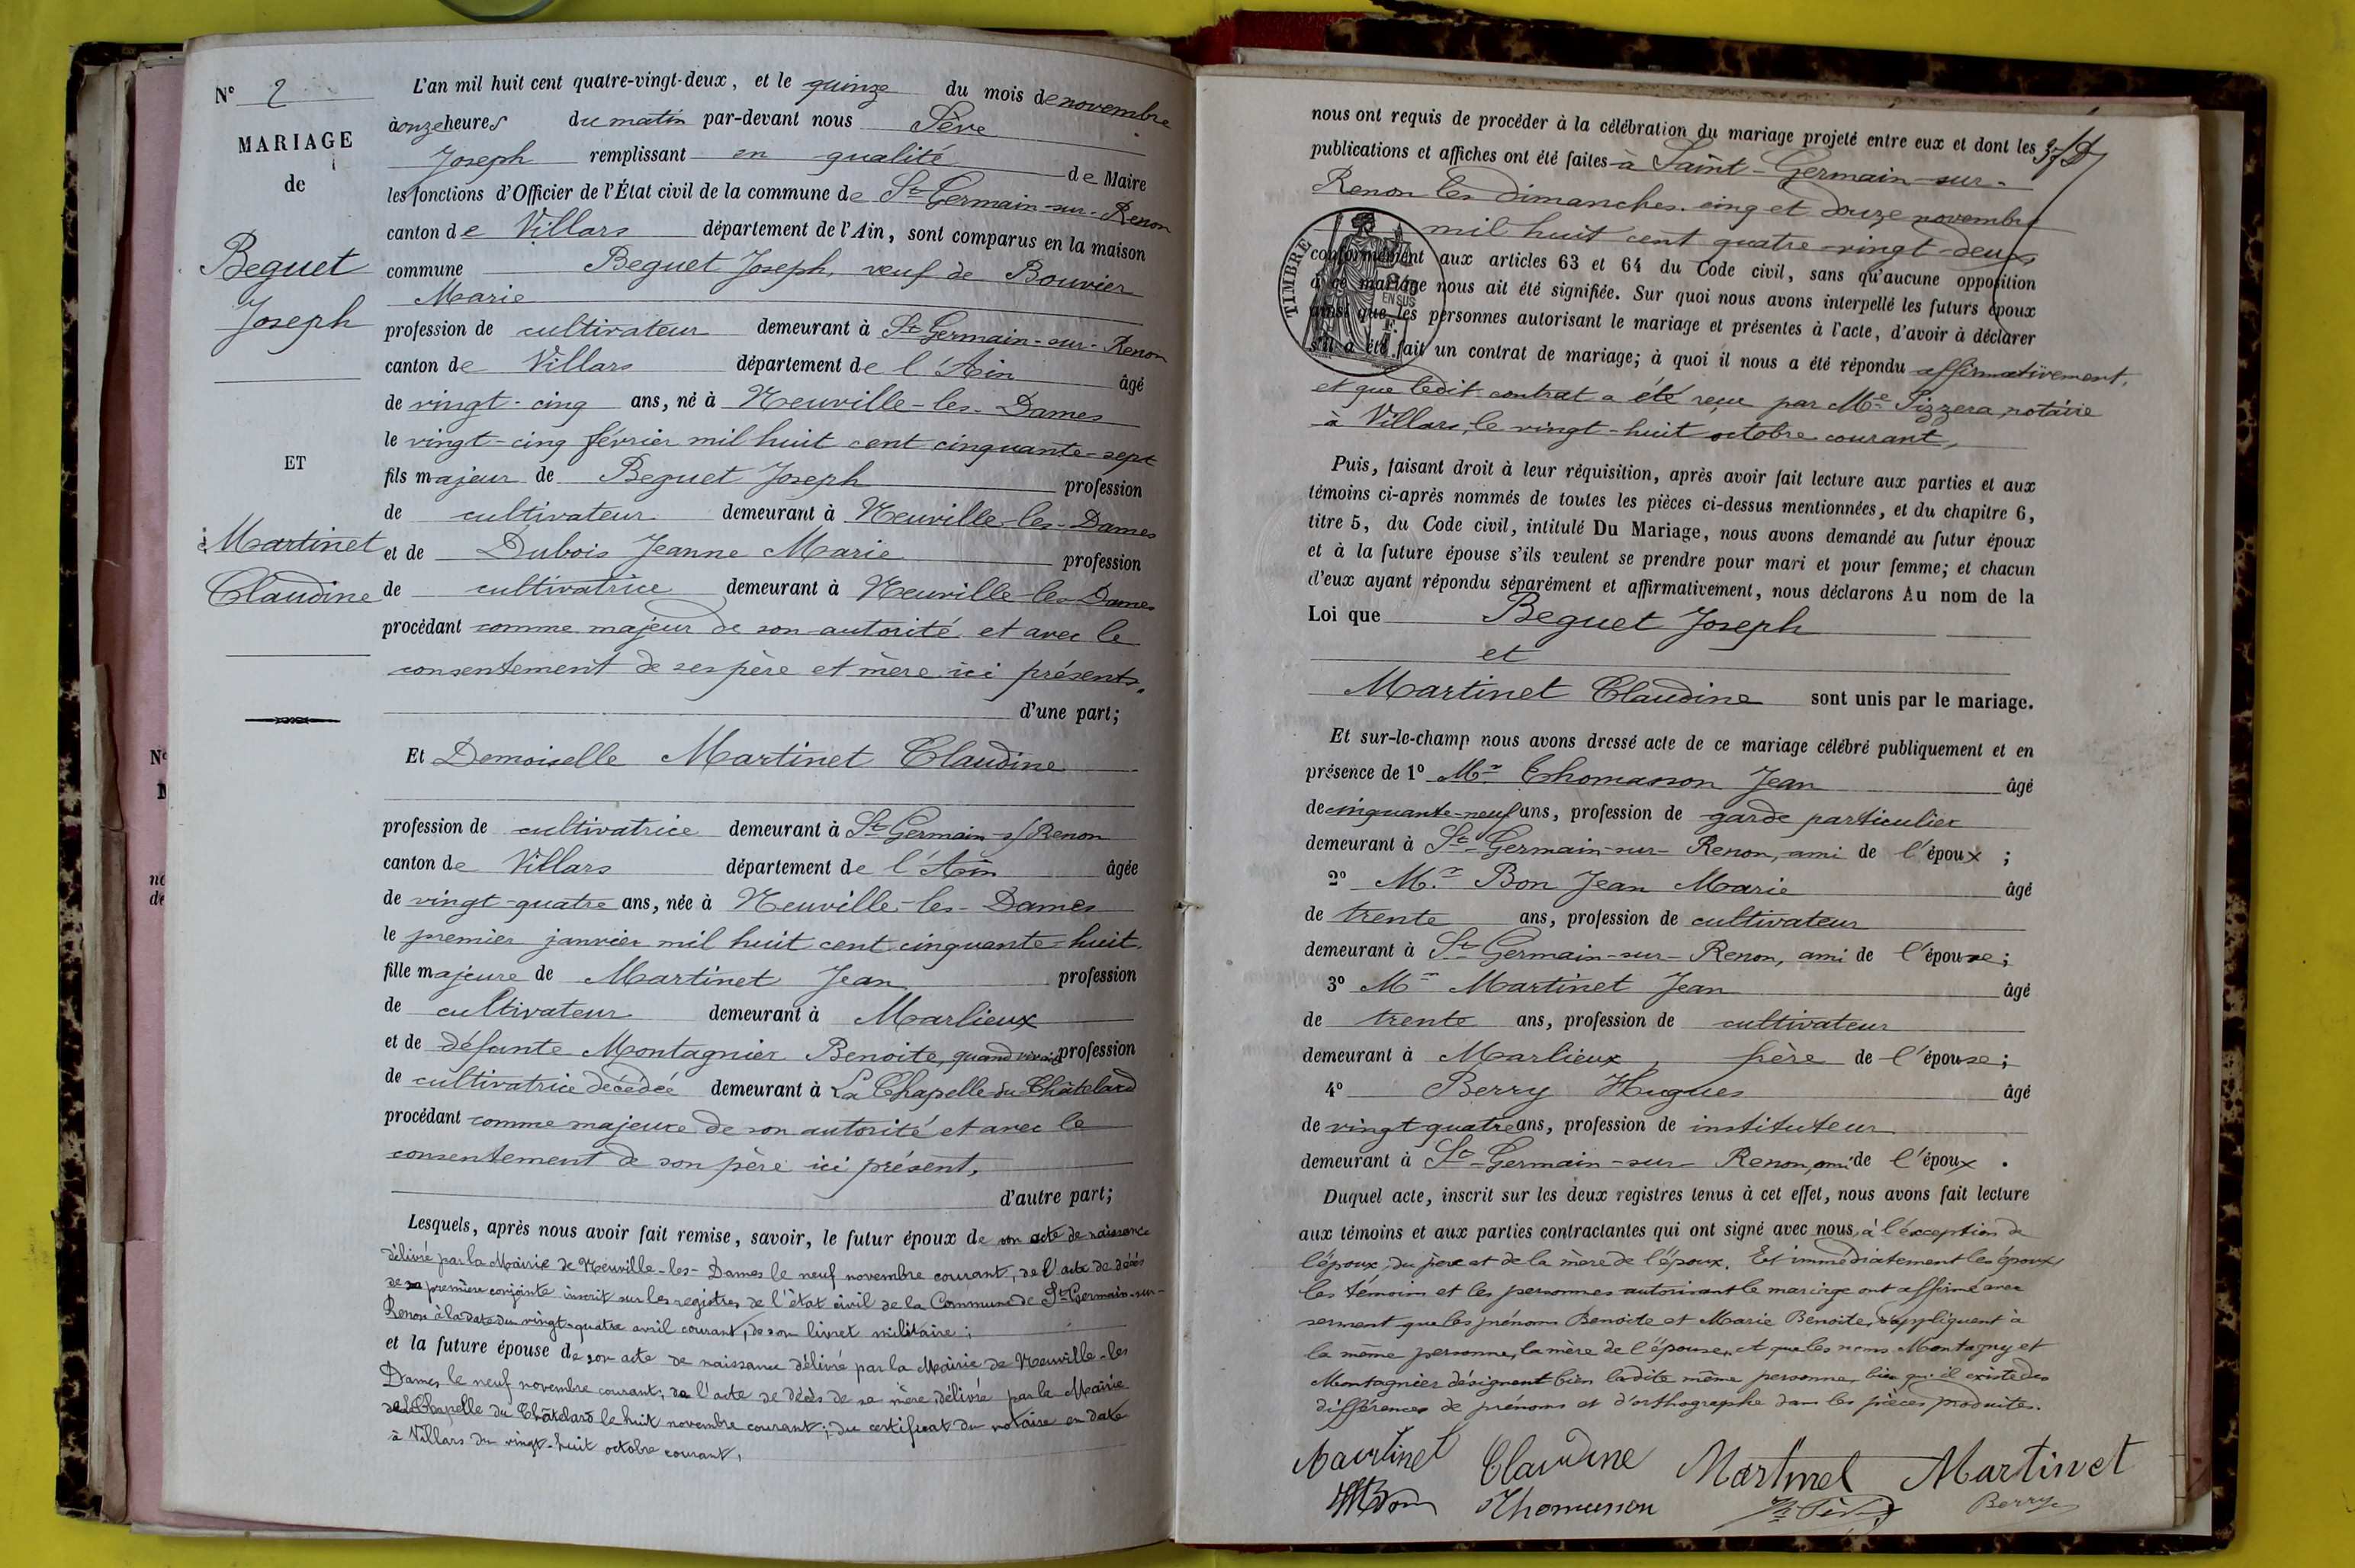 N° 2
MARIAGE
de
Beguet
Joseph
ET
Martinet
Claudine
L'an mil huit cent quatre-vingt-deux, et le quinze du mois de novembre
à onze heures du matin par-devant nous Sève
Joseph remplissant en qualité de Maire
les fonctions d'Officier de l'État civil de la commune de St Germain-sur-Renon
canton de Villars département de l'Ain, sont comparus en la maison
commune Beguet Joseph, veuf de Bouvier
Marie
profession de cultivateur demeurant à St Germain-sur-Renon
canton de Villars département de l'Ain âgé
de vingt-cinq ans, né à Neuville-les-Dames
le vingt-cinq février mil huit cent cinquante-sept
fils majeur de Beguet Joseph profession
de cultivateur demeurant à Neuville-les-Dames
et de Dubois Jeanne Marie profession
de cultivatrice demeurant à Neuville-les-Dames
procédant comme majeur de son autorité et avec le
consentement de ses père et mère ici présents,
d'une part;
Et Demoiselle Martinet Claudine
profession de cultivatrice demeurant à St Germain-s/Renon
canton de Villars département de l'Ain âgée
de vingt-quatre ans, née à Neuville-les-Dames
le premier janvier mil huit cent cinquante-huit,
fille majeure de Martinet Jean profession
de cultivateur demeurant à Marlieux
et de défunte Montagnier Benoite, quand vivait profession
de cultivatrice décédée demeurant à La Chapelle du Châtelard
procédant comme majeure de son autorité et avec le
consentement de son père ici présent,
d'autre part;
Lesquels, après nous avoir fait remise, savoir, le futur époux de son acte de naissance
délivré par la Mairie de Neuville-les-Dames le neuf novembre courant, de l'acte de décès
de sa première conjointe inscrit sur les registres de l'état civil de la Commune de St Germain-sur-
Renon à la date du vingt-quatre avril courant, de son livret militaire;
et la future épouse de son acte de naissance délivré par la Mairie de Neuville-les
Dames, le neuf novembre courant; de l'acte de décès de sa mère, délivré par la Mairie
de La Chapelle du Châtelard le huit novembre courant; du certificat du notaire en date
à Villars du vingt-huit octobre courant,
nous ont requis de procéder à la célébration du mariage projeté entre eux et dont les
publications et affiches ont été faites à Saint-Germain-sur-
Renon les dimanches cinq et douze novembre
mil huit cent quatre-vingt-deux
TIMBRE
conformément aux articles 63 et 64 du Code civil, sans qu'aucune opposition
à ce mariage nous ait été signifiée. Sur quoi nous avons interpellé les futurs époux
ainsi que les personnes autorisant le mariage et présentes à l'acte, d'avoir à déclarer
s'il a été fait un contrat de mariage; à quoi il nous a été répondu affirmativement,
et que ledit contrat a été reçu par Me Sizzera, notaire
à Villars, le vingt-huit octobre courant,
Puis, faisant droit à leur réquisition, après avoir fait lecture aux parties et aux
témoins ci-après nommés de toutes les pièces ci-dessus mentionnées, et du chapitre 6,
titre 5, du Code civil, intitulé Du Mariage, nous avons demandé au futur époux
et à la future épouse s'ils veulent se prendre pour mari et pour femme; et chacun
d'eux ayant répondu séparément et affirmativement, nous déclarons Au nom de la
Loi que Beguet Joseph
et
Martinet Claudine sont unis par le mariage.
Et sur-le-champ nous avons dressé acte de ce mariage célébré publiquement et en
présence de 1° Mr Thomasson Jean âgé
de cinquante-neuf ans, profession de garde particulier
demeurant à St Germain-sur-Renon, ami de l'époux ;
2° Mr Bon Jean Marie âgé
de trente ans, profession de cultivateur
demeurant à St Germain-sur-Renon, ami de l'épouse;
3° Mr Martinet Jean âgé
de trente ans, profession de cultivateur
demeurant à Marlieux, frère de l'épouse;
4° Berry Hugues âgé
de vingt quatre ans, profession de instituteur
demeurant à St Germain-sur-Renon, ami de l'époux .
Duquel acte, inscrit sur les deux registres tenus à cet effet, nous avons fait lecture
aux témoins et aux parties contractantes qui ont signé avec nous, à l'exception de
l'époux, du père et de la mère de l'époux. Et immédiatement les époux,
les témoins et les personnes autorisant le mariage ont affirmé avec
serment que les prénoms Benoite et Marie Benoite, s'appliquent à
la même personne, la mère de l'épouse, et que les noms Montagny et
Montagnier désignent bien ladite même personne, bien qu'il existe des
différences de prénoms et d'orthographe dans les pièces produites.
Martinet Claudine Martinet Martinet
Thomasson Berry